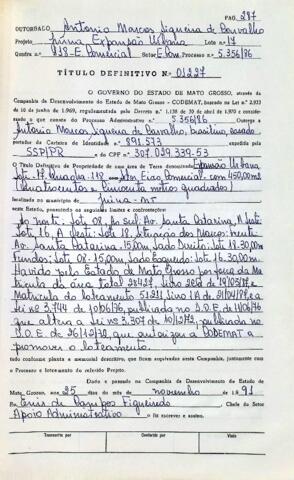 PAG. 287
OUTORGADO Antonio Marcos Siqueira de Carvalho
Projeto Juina Expansão Urbana Lote n.º 17
Quadra n.º 118-E. Comercial Setor E.Com. Processo n.º 5.356/86
TÍTULO DEFINITIVO N.º 01227
O GOVERNO DO ESTADO DE MATO GROSSO, através da
Companhia de Desenvolvimento do Estado de Mato Grosso - CODEMAT, baseado na Lei n.º 2.933
de 10 de junho de 1.969, regulamentada pelo Decreto n.º 1.138 de 30 de abril de 1.970 e considerando
o que consta do Processo Administrativo n.º 5.356/86 Outorga a
Antonio Marcos Siqueira de Carvalho, brasileiro, casado
portador da Carteira de Identidade n.º 891.573 expedida pela
SSP/PR e do CPF n.º 307.029.339-53
O Título Definitivo de Propriedade de uma área de Terra denominada Expansão Urbana
Lote 17, Quadra 118 Setor Eixo Comercial - com 450,00m2
(Quatrocentos e Cincoenta metros quadrados)
localizado no município de Juina - MT
neste Estado, possuindo os seguintes limites e confrontações:
Ao norte: Lote 08, Ao Sul: Av. Santa Catarina, A Leste:
Lote 16, A Oeste: Lote 18. Situação dos Marcos: Frente
Av. Santa Catarina 15,00m Lado Direito: Lote 18.30,00m
Fundos: Lote 08 - 15,00m, Lado Esquerdo: Lote 16.30,00m
Havido pelo Estado de Mato Grosso por força da Ma
trícula da área total 28429, Livro de 19/05/79, e
Matrícula do loteamento 51.211 Livro 1A de 21/04/89, e a
Lei nº 3.744 de 10/06/76, publicada no D.O.E. de 11/06/76
que altera a Lei nº 3.307 de 10/12/72, publicada no
D.O.E. de 26/12/72, que autoriza a CODEMAT a
promover o loteamento.
tudo conforme planta e memorial descritivo, que ficam arquivados nesta Companhia, juntamente com
o Processo e loteamento do referido Projeto.
Dado e passado na Companhia de Desenvolvimento do Estado de
Mato Grosso, aos 25 dias do mês de novembro de 1.991
Eu Enir de Campos Figueiredo Chefe do Setor
Apoio Administrativo o fiz escrever e assino.
Transcrito por Conferido por Visto